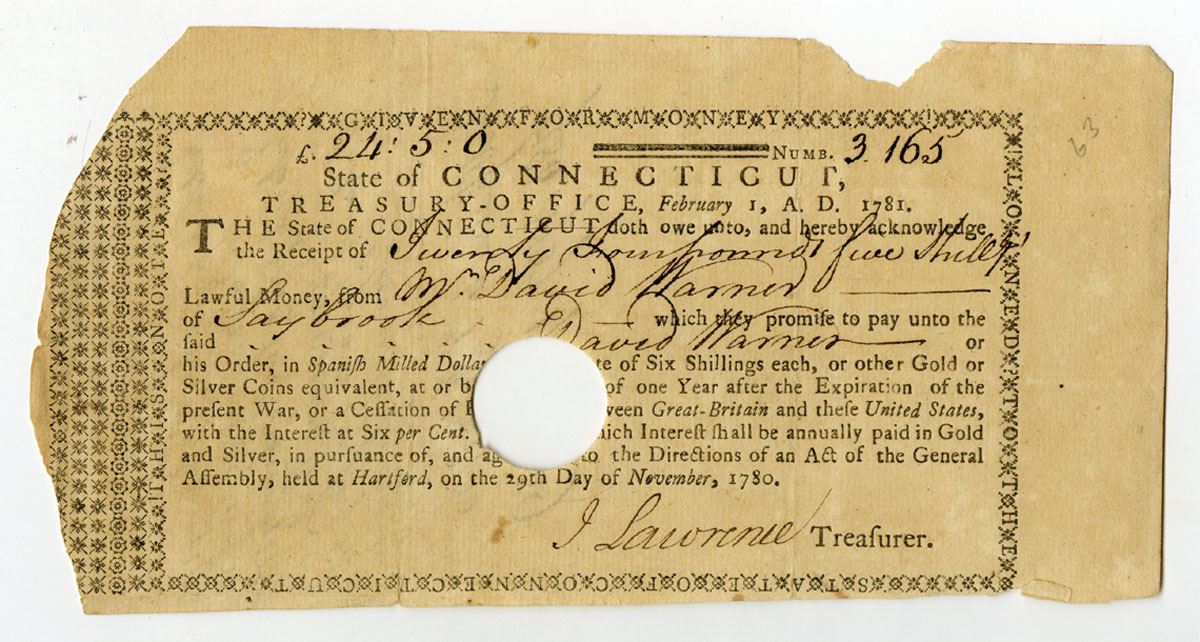 GIVEN FOR MONEY
£. 24: 5: 0 NUMB. 3.165
State of CONNECTICUT,
TREASURY-OFFICE, February 1, A. D. 1781.
THE State of CONNECTICUT doth owe unto, and hereby acknowledge
the Receipt of Twenty four pounds five Shillgs
Lawful Money, from Mr David Warner
of Saybrook which they promise to pay unto the
ſaid David Warner or
his Order, in Spaniſh Milled Dolla te of Six Shillings each, or other Gold or
Silver Coins equivalent, at or b of one Year after the Expiration of the
present War, or a Ceſſation of ween Great-Britain and theſe United States,
with the Intereſt at Six per Cent. ich Intereſt ſhall be annually paid in Gold
and Silver, in pursuance of, and ag to the Directions of an Act of the General
Aſſembly, held at Hartford, on the 29th Day of November, 1780.
J Lawrence Treaſurer.
LOANED TO THE
STATE OF CONNECTICUT
THIS NOTE IS
63